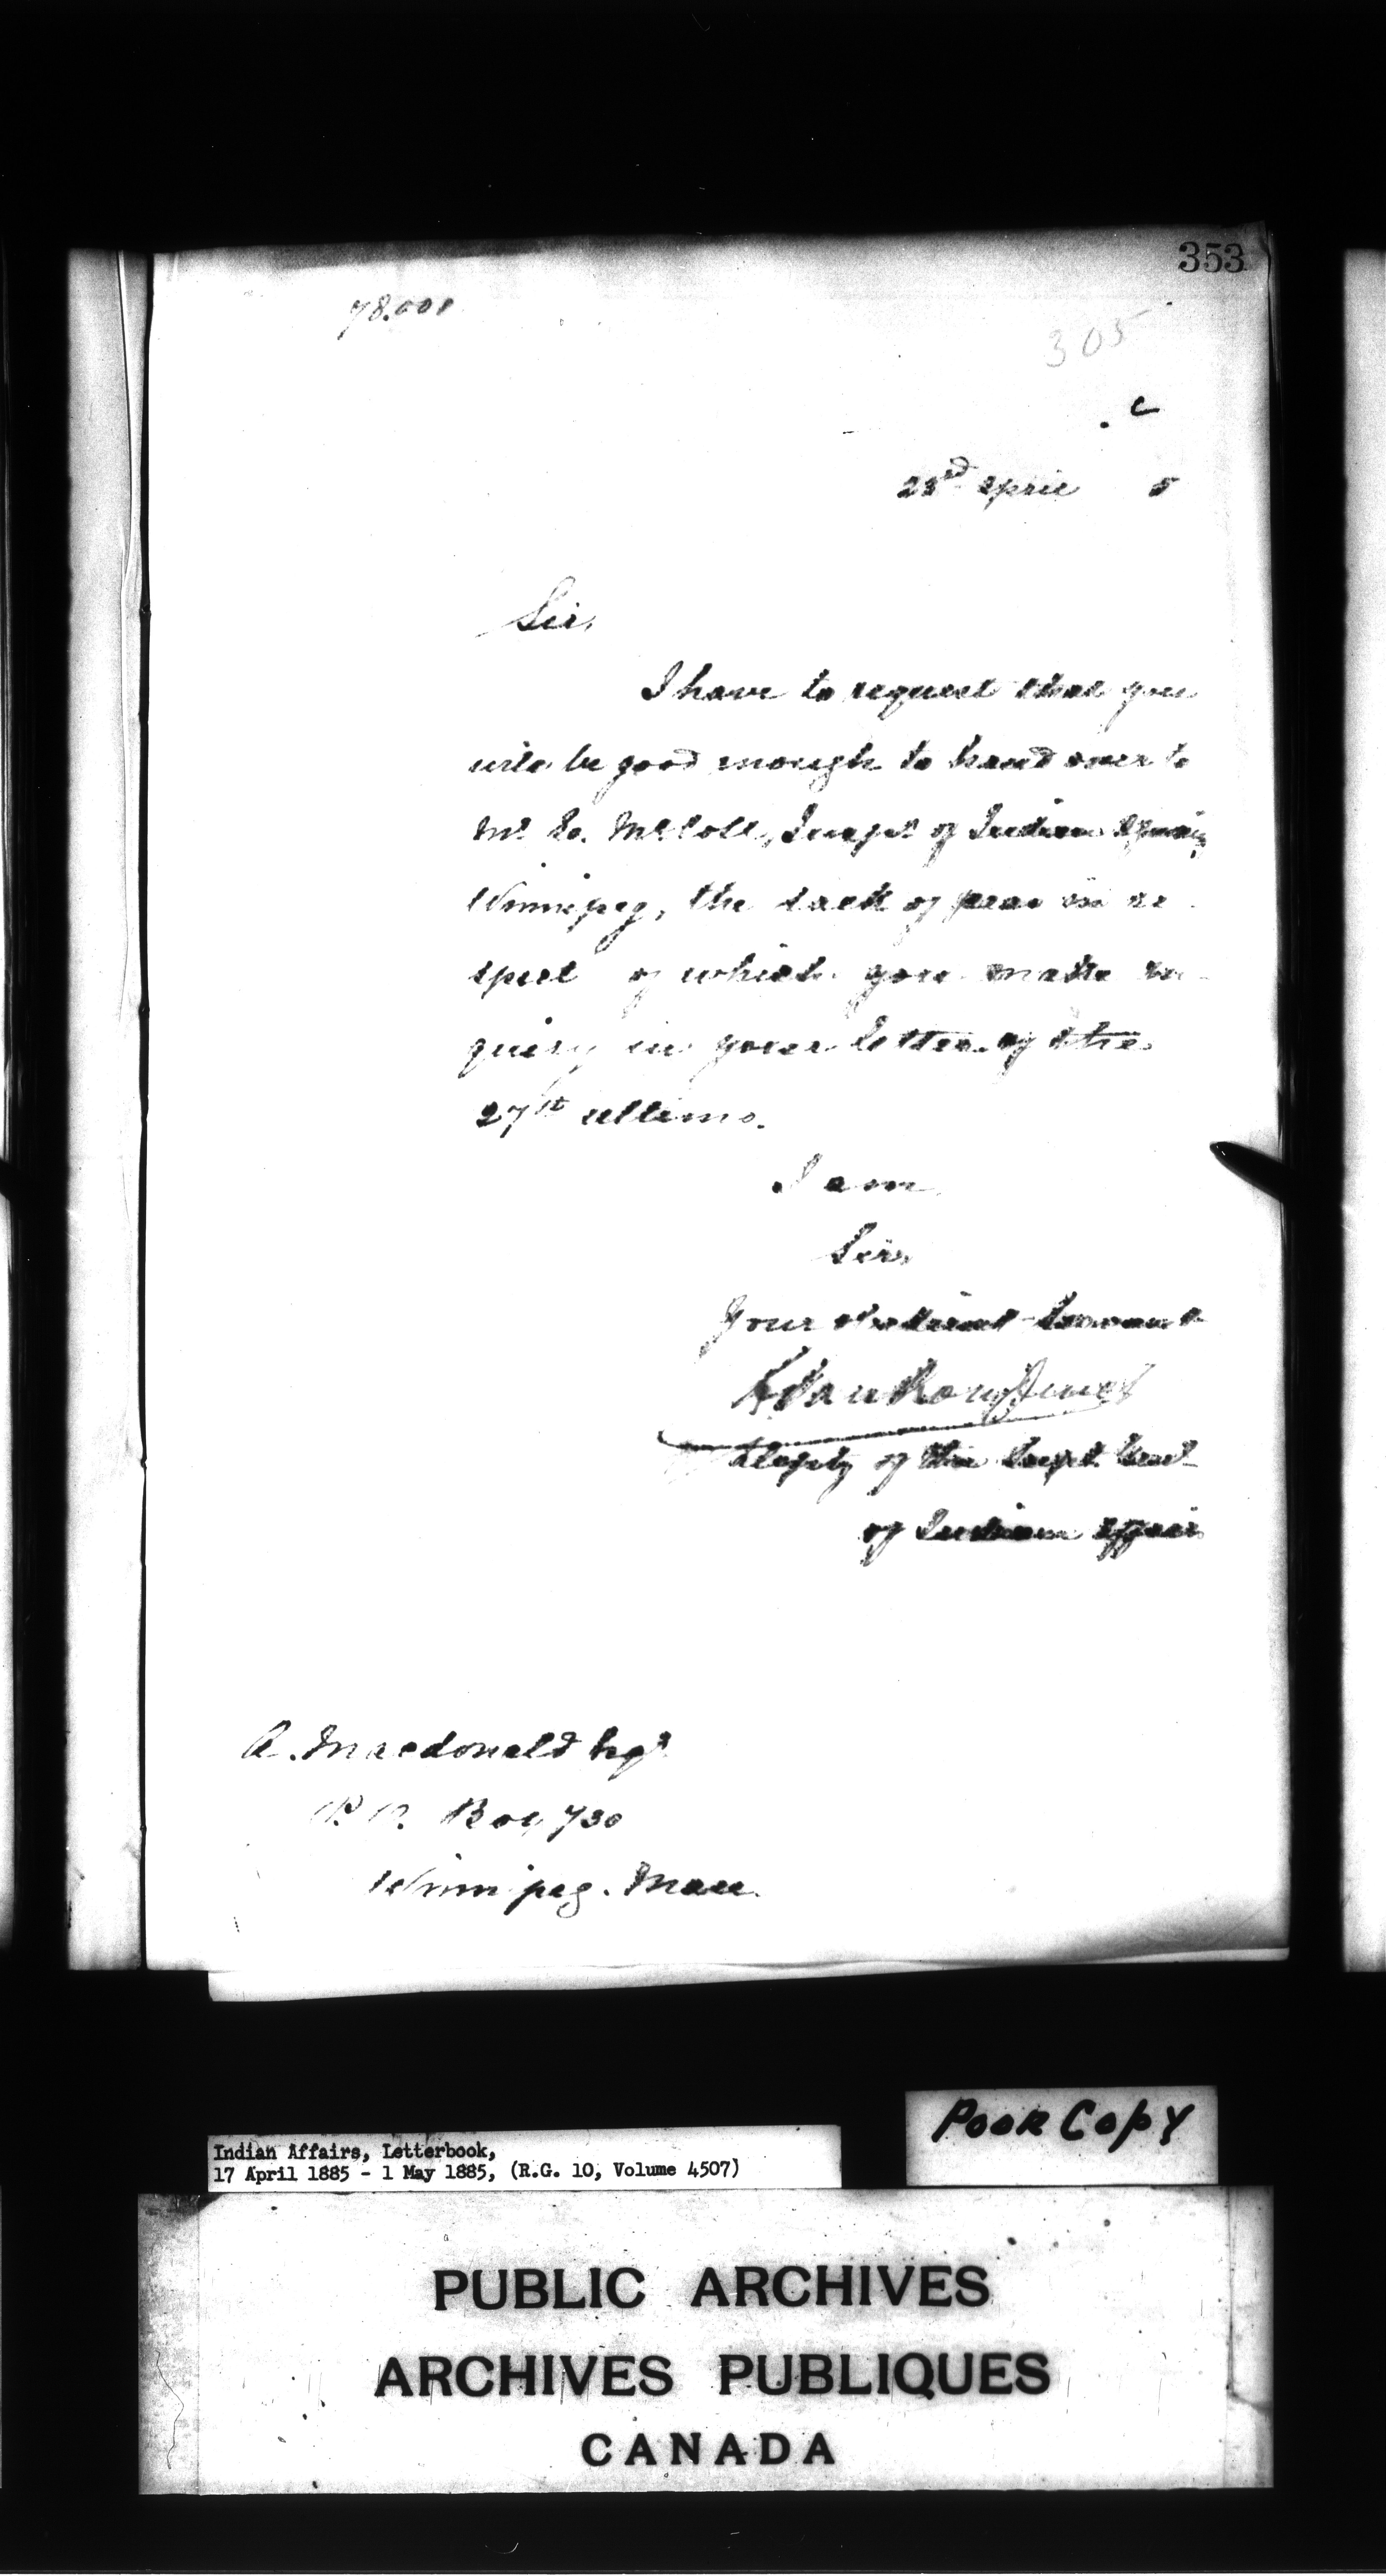 353
305
23rd April 5
Sir,
I have to request that you
will be good enough to hand over to
Mr. McColl, Inspr of Indian Agencies
Winnipeg, the sack of peas in re
spect of which you made in-
quiry in your letter of the
27th ultimo.
I am
Sir,
Your obedient Servant
L Vankoughnet
Deputy of the Supt. Genl
of Indian Affairs
A. Macdonald Esqr
P.O. Box 730
Winnipeg. Man.
POOR COPY
Indian Affairs, Letterbook,
17 April 1885 - 1 May 1885, (R.G. 10, Volume 4507)
PUBLIC ARCHIVES
ARCHIVES PUBLIQUES
CANADA